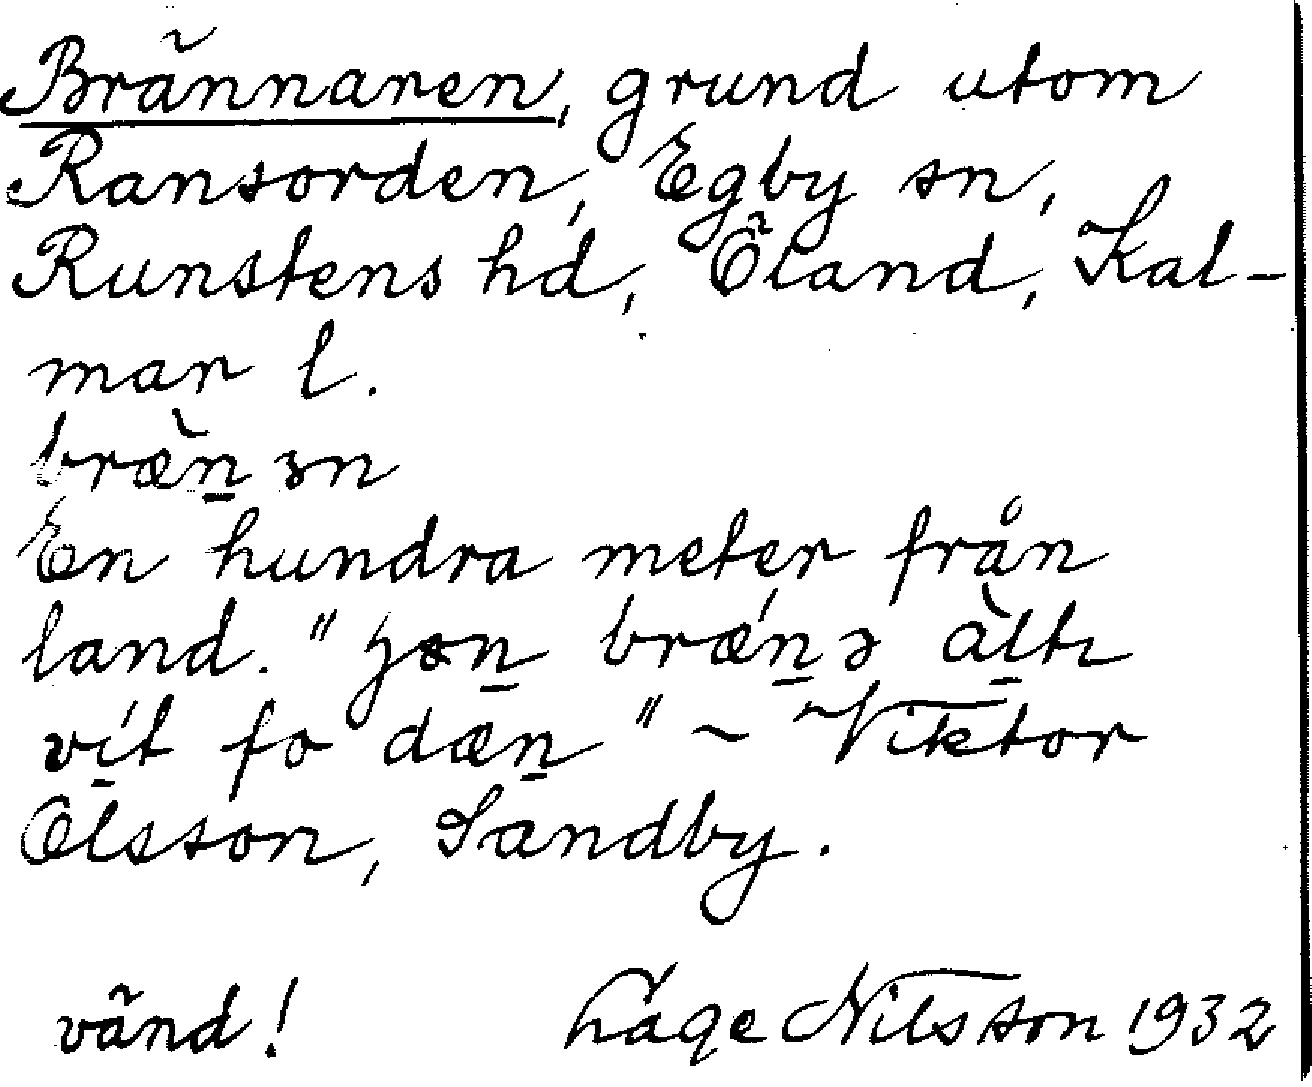 Brännaren, grund utom
Ransorden, Egby sn,
Runstens hd, Öland, Kal-
mar l.
bræ̀n̠ɜn
En hundra meter från
land. "hɜn̠ brǽn̠ə àl̠tɩ
ví̠t fo dæn̠" ~ Viktor
Olsson, Sandby.
vänd! Håge Nilsson 1932